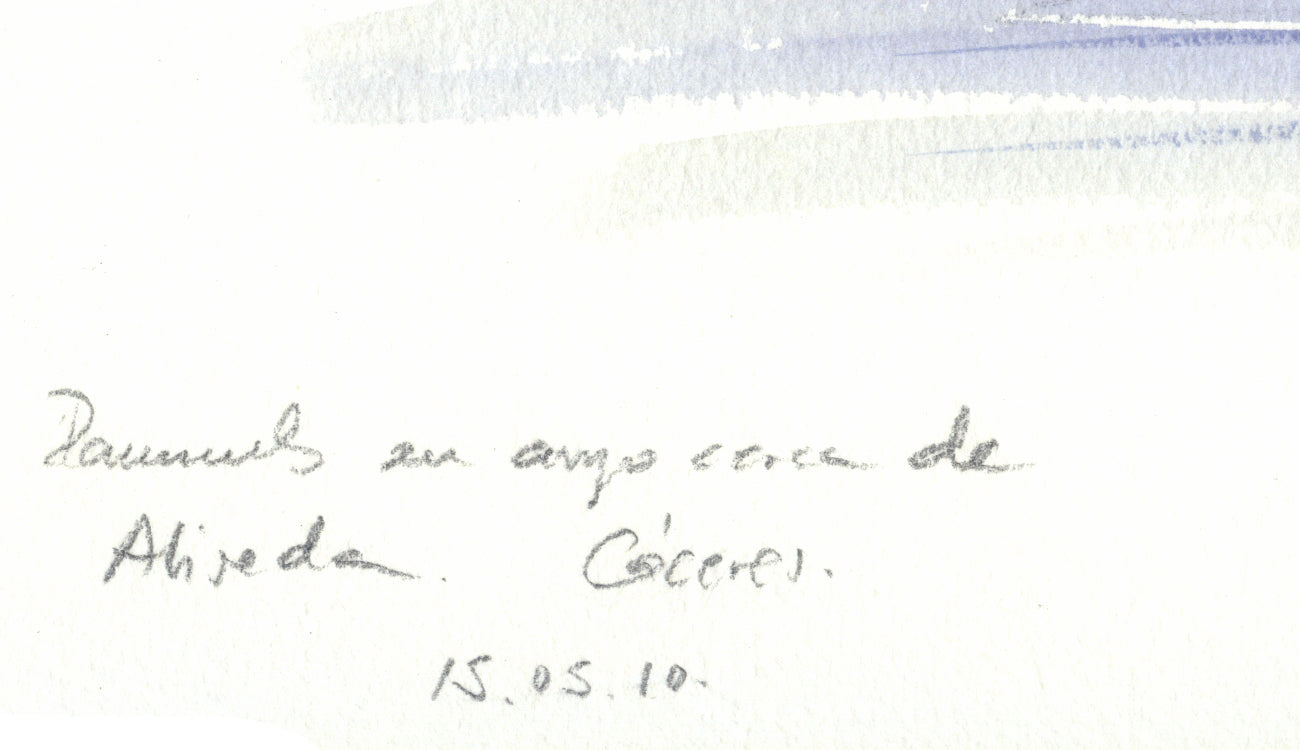 en arroyo cerca de
Aliseda. Cáceres.
15.05.10.